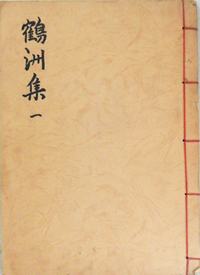 鶴洲集 一